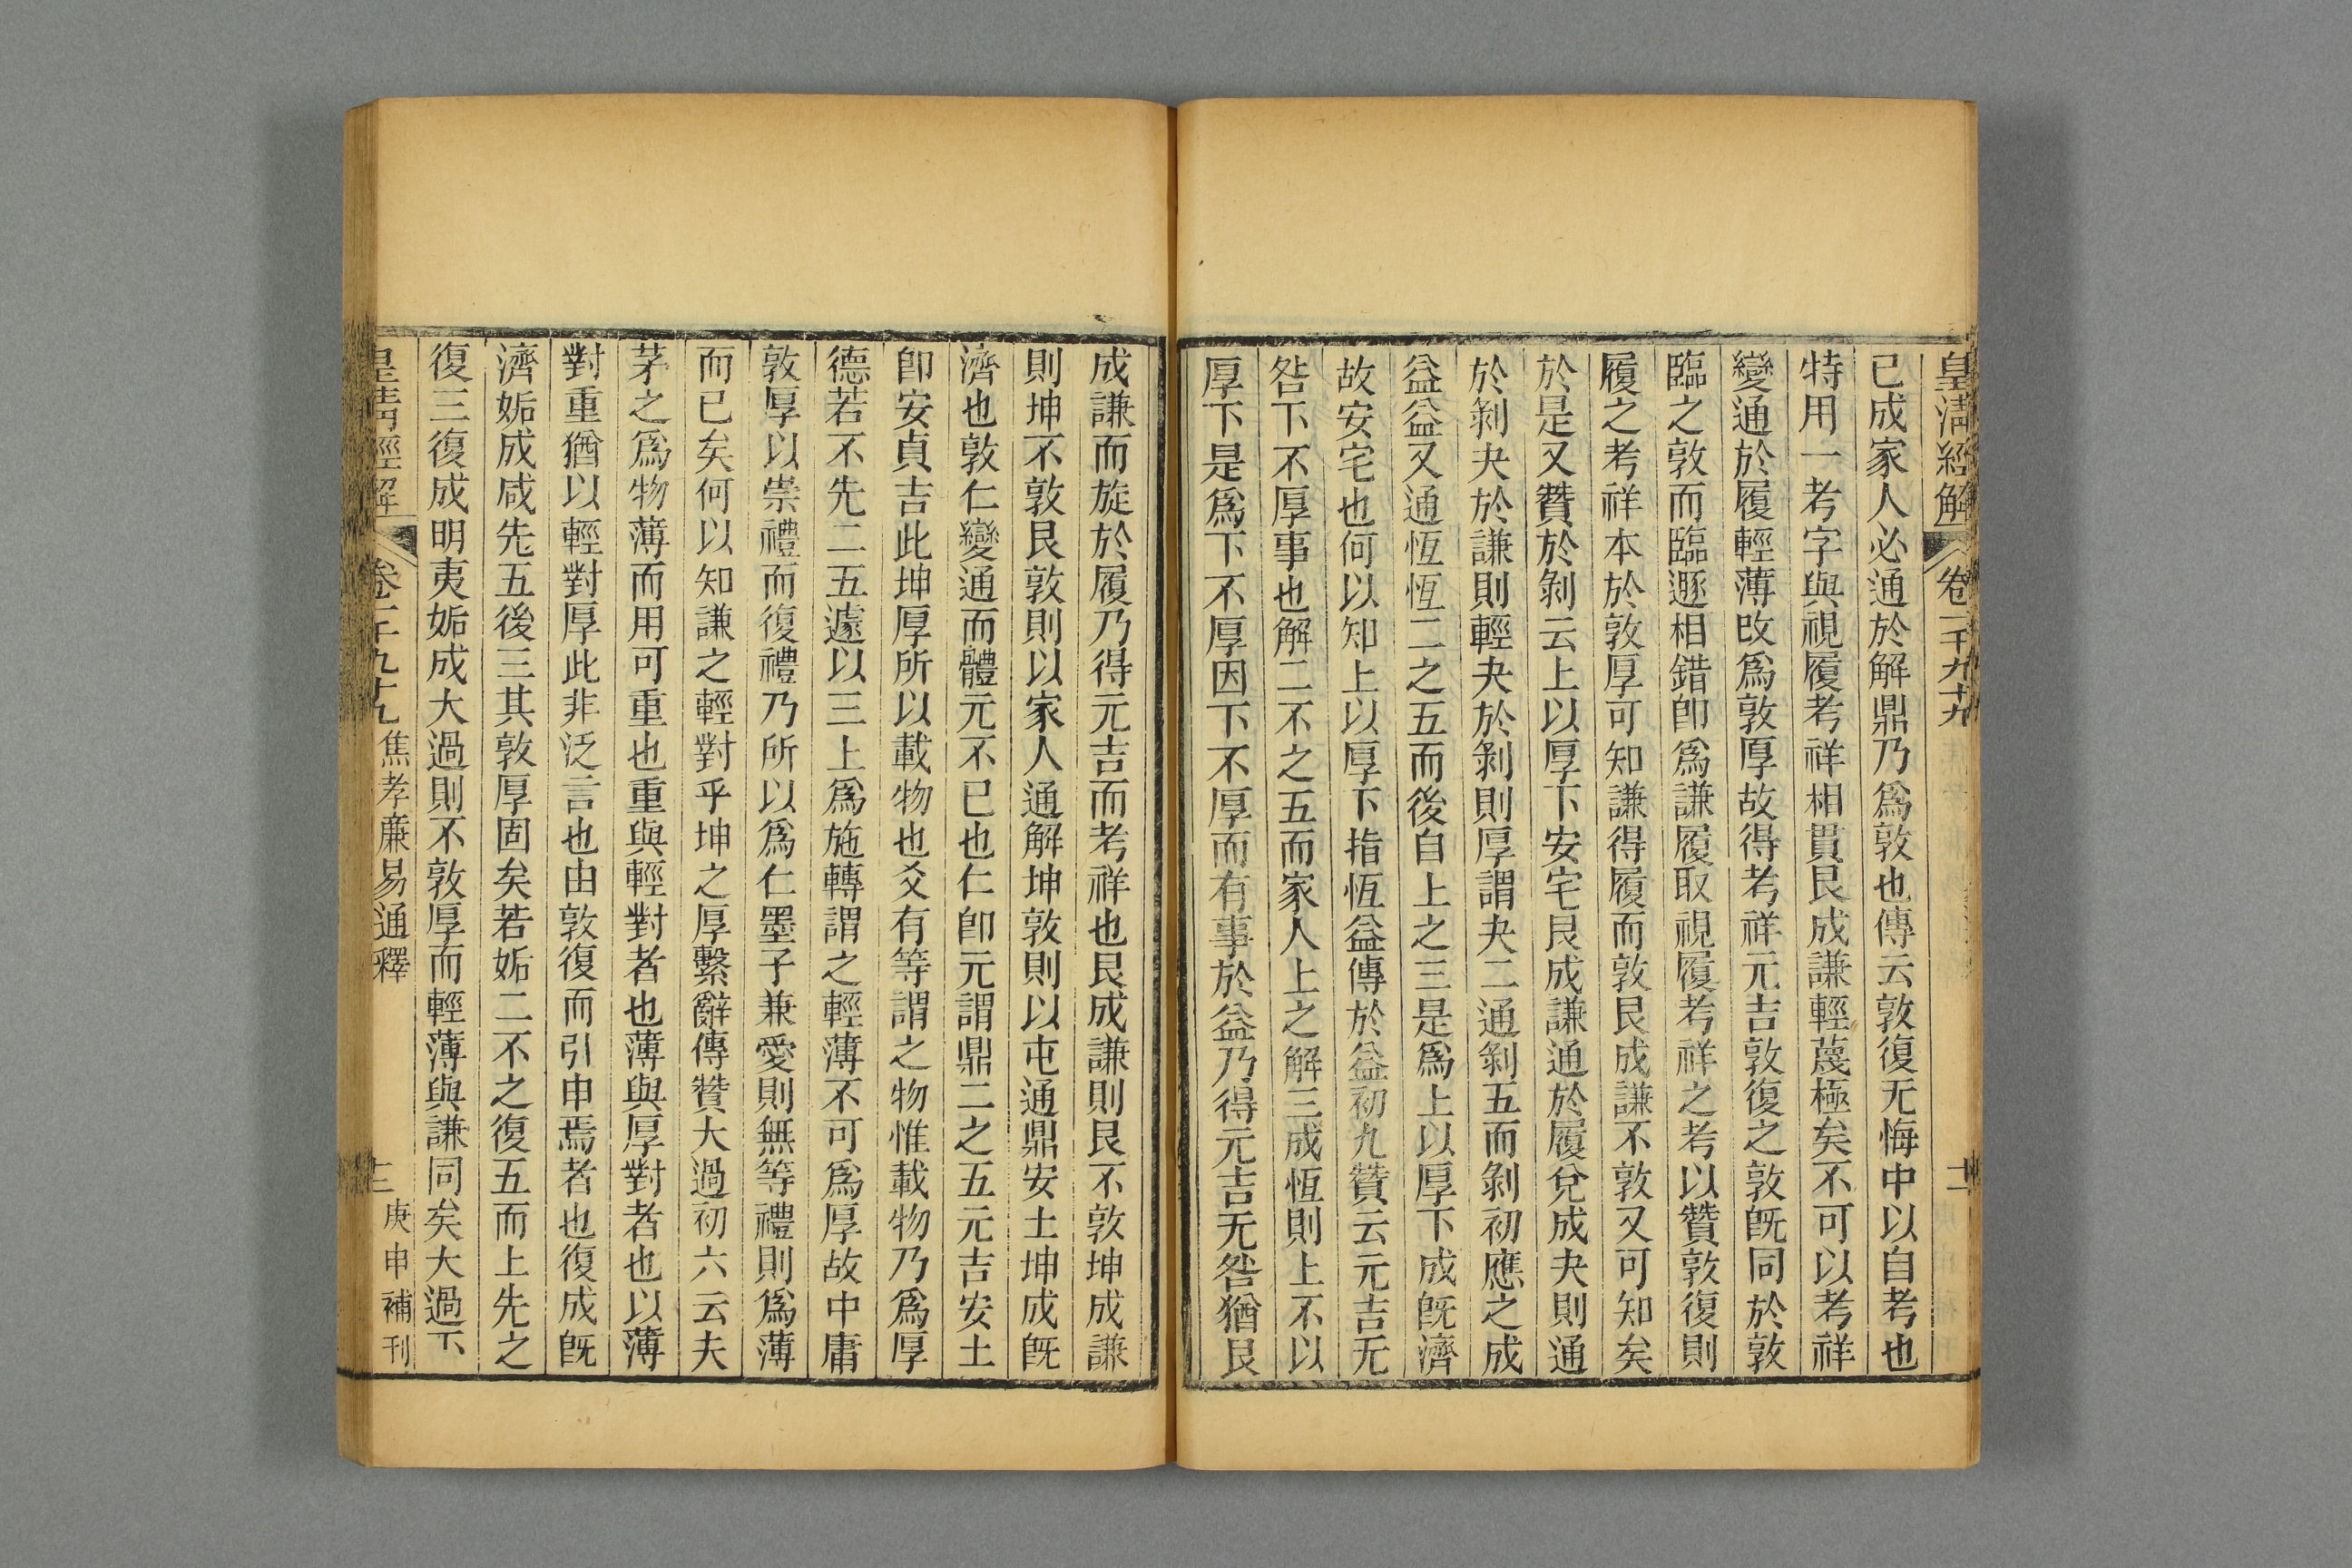 皇淸經解 卷一千九十九 十二
已成家人必通於解鼎乃爲敦也傳云敦復无悔中以自考也
特用一考字與視履考祥相貫艮成謙輕蔑極矣不可以考祥
變通於履輕薄改爲敦厚故得考祥元吉敦復之敦旣同於敦
臨之敦而臨遯相錯卽爲謙履取視履考祥之考以贊敦復則
履之考祥本於敦厚可知謙得履而敦艮成謙不敦又可知矣
於是又贊於剝云上以厚下安宅艮成謙通於履兌成夬則通
於剝夬於謙則輕夬於剝則厚謂夬二通剝五而剝初應之成
益益又通恆恆二之五而後自上之三是爲上以厚下成旣濟
故安宅也何以知上以厚下指恆益傳於益初九贊云元吉无
咎下不厚事也解二不之五而家人上之解三成恆則上不以
厚下是爲下不厚因下不厚而有事於益乃得元吉无咎猶艮
成謙而旋於履乃得元吉而考祥也艮成謙則艮不敦坤成謙
則坤不敦艮敦則以家人通解坤敦則以屯通鼎安土坤成旣
濟也敦仁變通而體元不已也仁卽元謂鼎二之五元吉安土
卽安貞吉此坤厚所以載物也爻有等謂之物惟載物乃爲厚
德若不先二五遽以三上爲施轉謂之輕薄不可爲厚故中庸
敦厚以崇禮而復禮乃所以爲仁墨子兼愛則無等禮則爲薄
而已矣何以知謙之輕對乎坤之厚繫辭傳贊大過初六云夫
茅之爲物薄而用可重也重與輕對者也薄與厚對者也以薄
對重猶以輕對厚此非泛言也由敦復而引申焉者也復成旣
濟姤成咸先五後三其敦厚固矣若姤二不之復五而上先之
復三復成明夷姤成大過則不敦厚而輕薄與謙同矣大過下
皇淸經解 卷一千九十九 焦孝廉易通釋 十三 庚申補刊